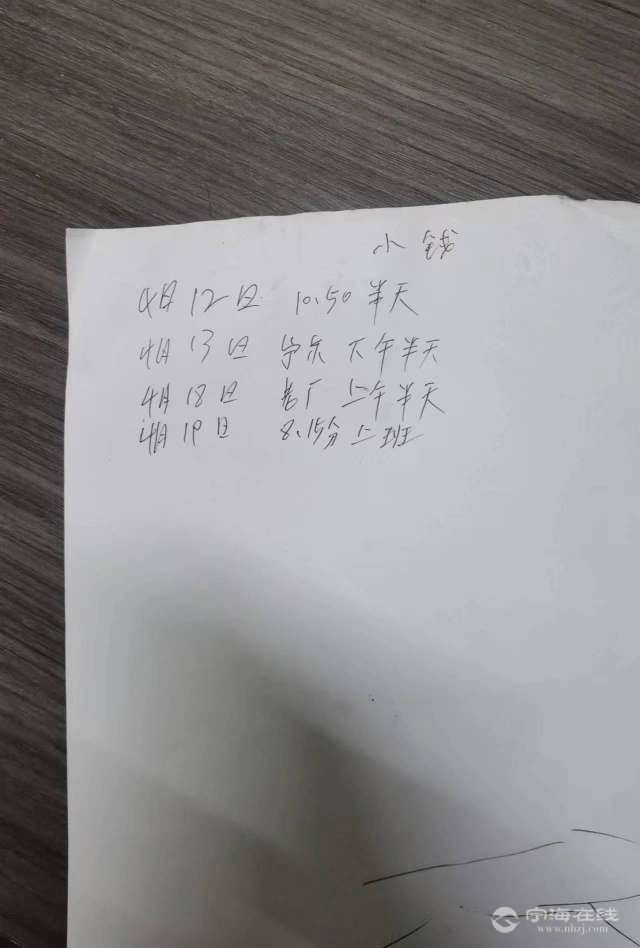 小钱
4月12日 10.50半天
4月13日 宁东 下午半天
4月18日 老厂 上午半天
4月19日 8.15分上班
宁海在线
www.nhzj.com